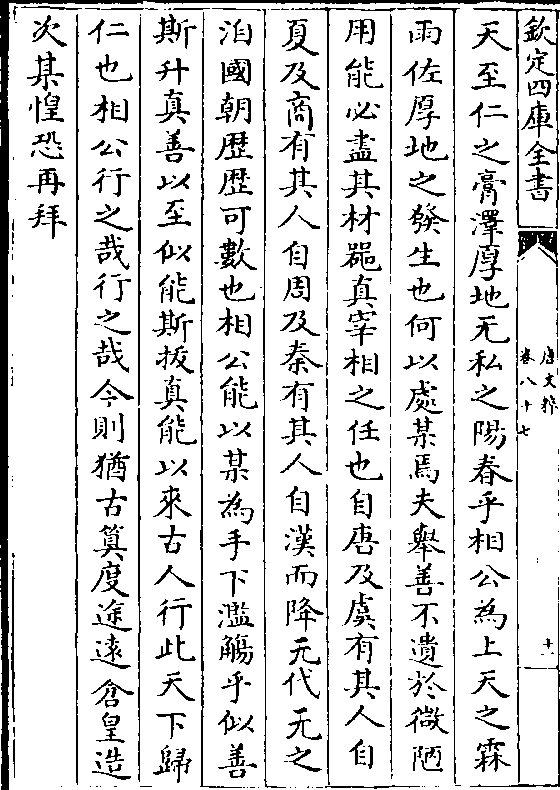 欽定四庫全書
唐文粹
卷八十七
十
天至仁之膏澤厚地无私之陽春乎相公為上天之霖
雨佐厚地之發生也何以處某焉夫舉善不遺於微陋
用能必盡其材器真宰相之任也自唐及虞有其人自
夏及商有其人自周及秦有其人自漢而降无代无之
洎國朝歷歷可數也相公能以某為手下濫觴乎似善
斯升真善以至似能斯拔真能以來古人行此天下歸
仁也相公行之哉行之哉今則猶古筭度途逺倉皇造
次某惶恐再拜